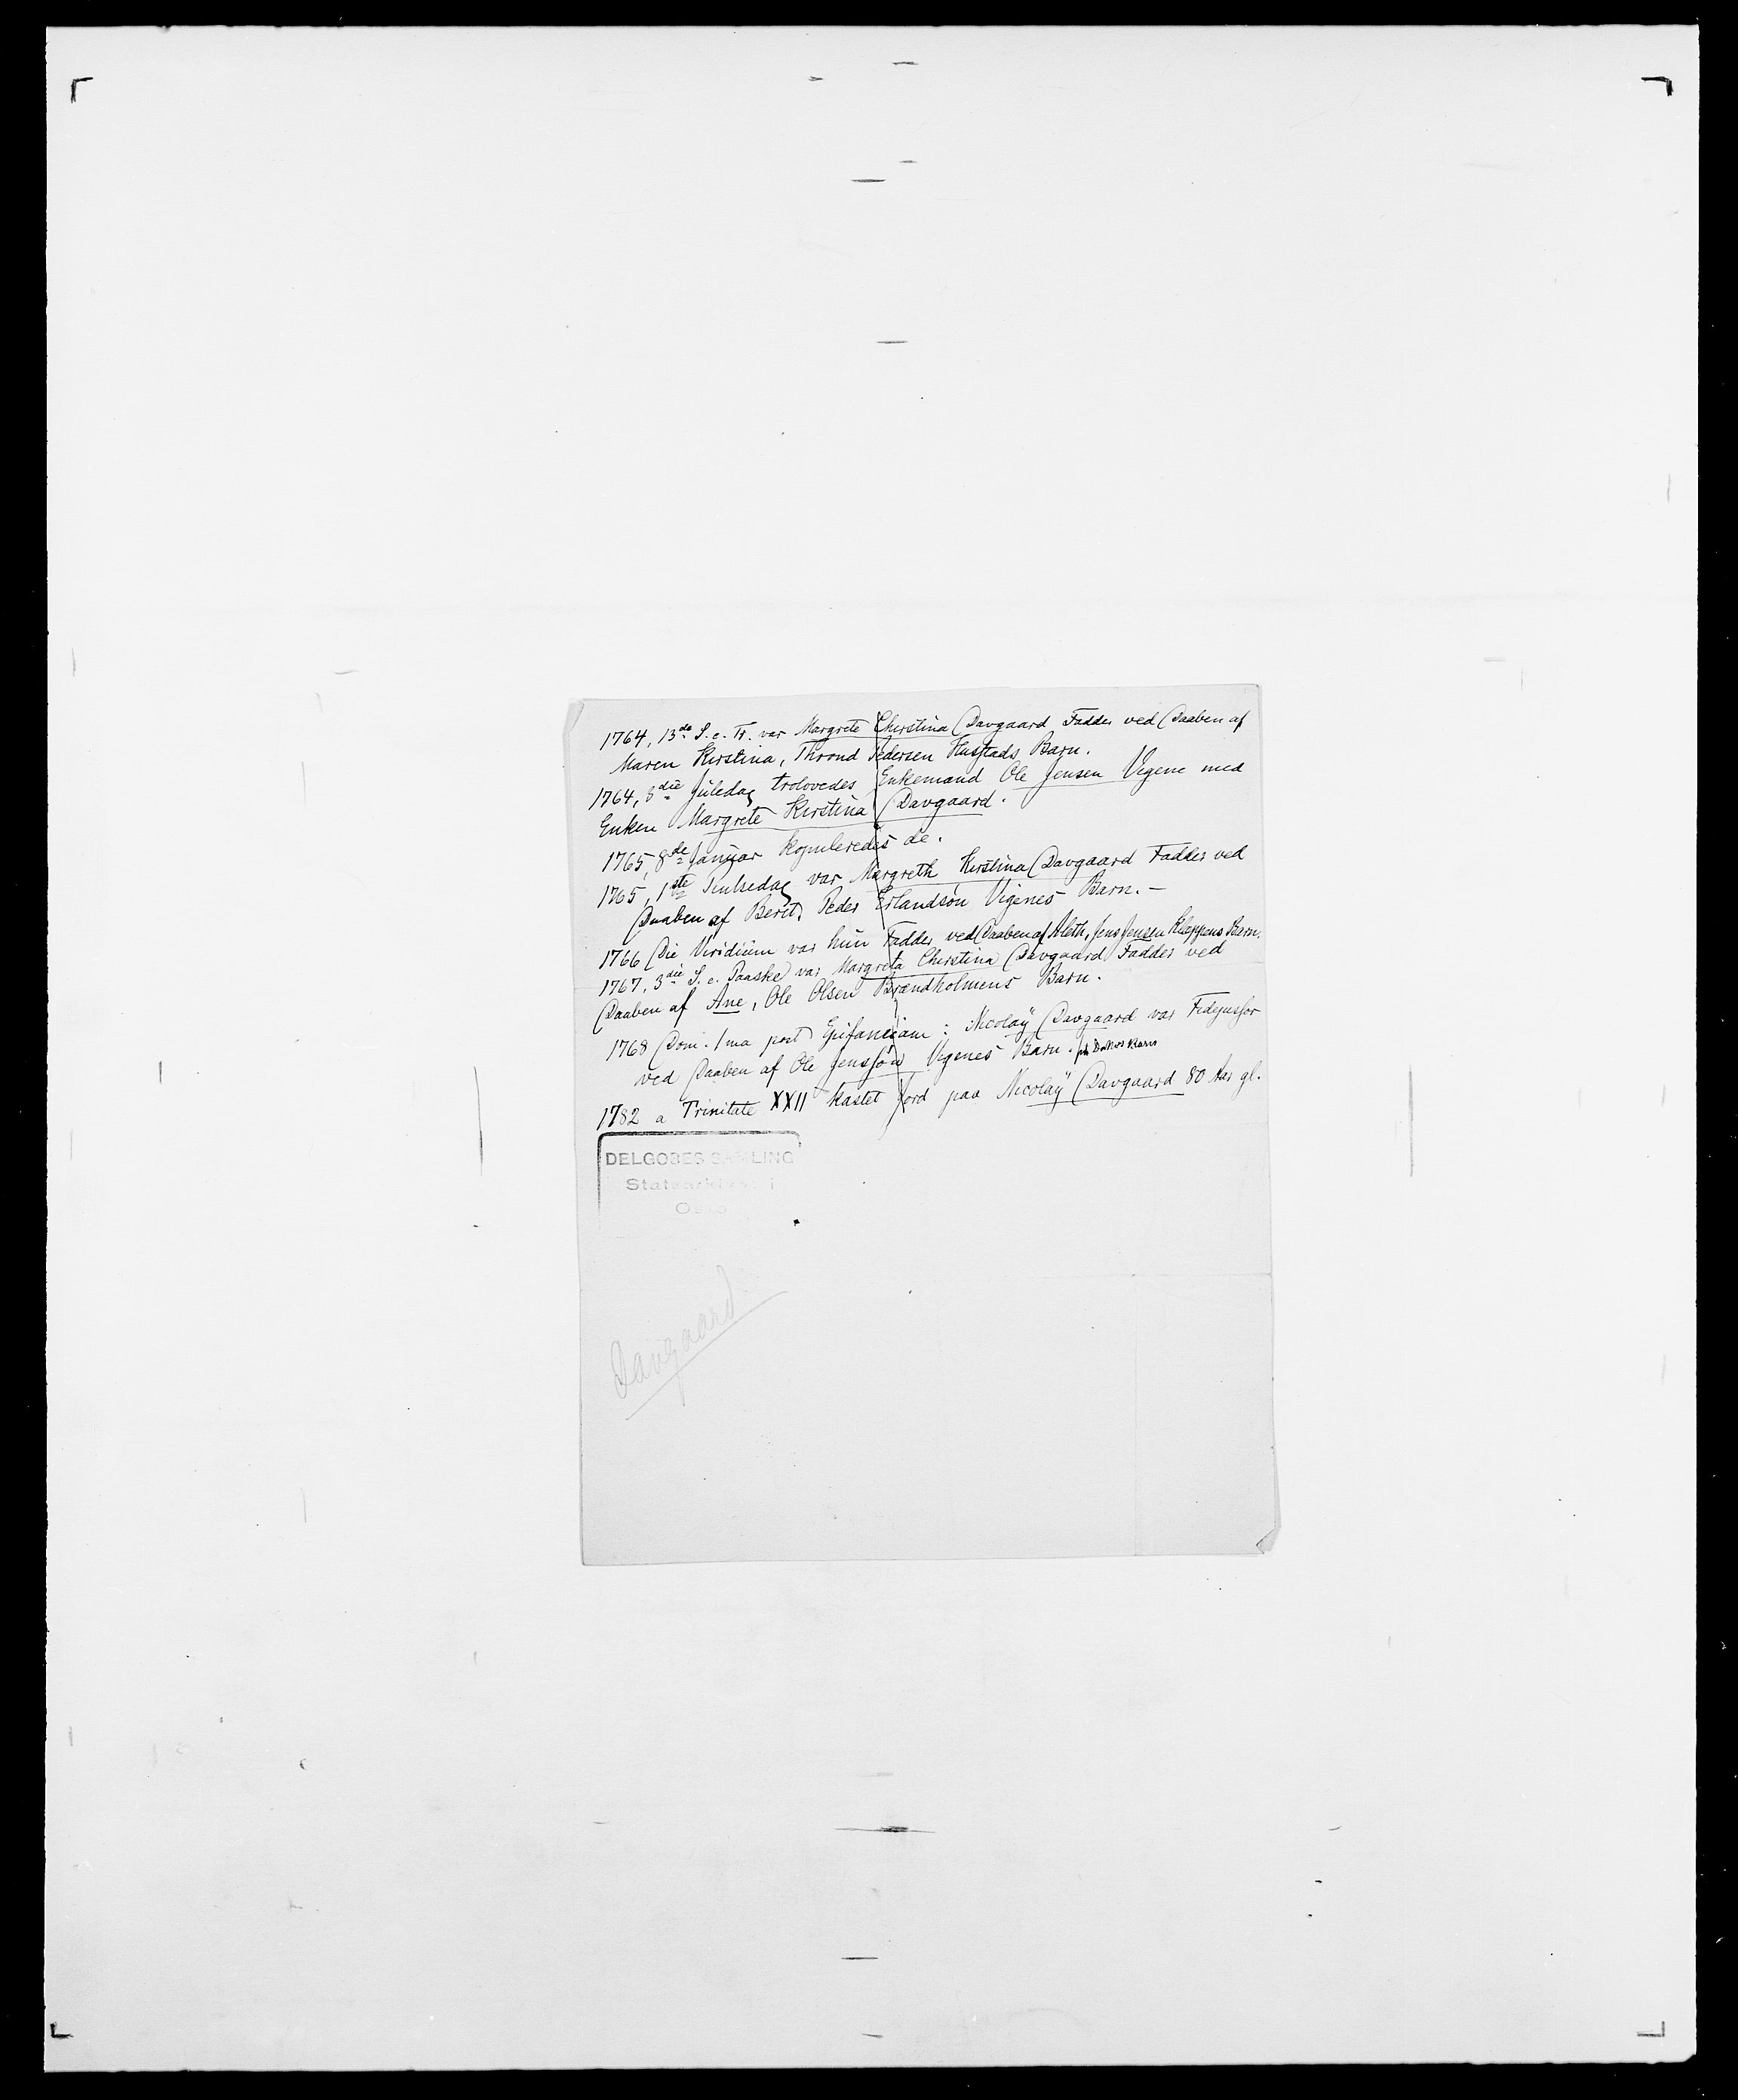 1764, 13de S. e. Tr. var Margrete Cherstina Davgaard Fadder ved Daaben af
Maren Kirstina, Thrond Pedersen Hustads Barn.
1764, 3die Juledag trolovedes Enkemand Ole Jensen Vegene med
Enken Margrete Kirstina Davgaard.
1765, 8de Januar kopuleredes de.
1765, 1ste Pinlsedag var Margreth Kirstina Davgaard Fadder ved
Daaben af Berit, Peder Erlandsøn Vigenes Barn.-
1766 Die Viridium var hun Fadder ved Daaben af Aleth, Jens Jensen Kleppens Barn.
1767, 3die S. e. Paaske var Margreta Cherstina Davgaard Fadder ved
Daaben af Ane, Ole Olsen Brandholmens Barn.
1768 Dom. 1ma post Epifaniam: Nicolaÿ Davgaard var Fidejussor
ved Daaben af Ole Jensøn Vegenes Barn. Barn
1782 a Trinitate XXII kastet Jord paa Nicolaÿ Davgaard 80 Aar gl.
DELGOBES SAMLING
Statsarkivet i
Oslo
Davgaard